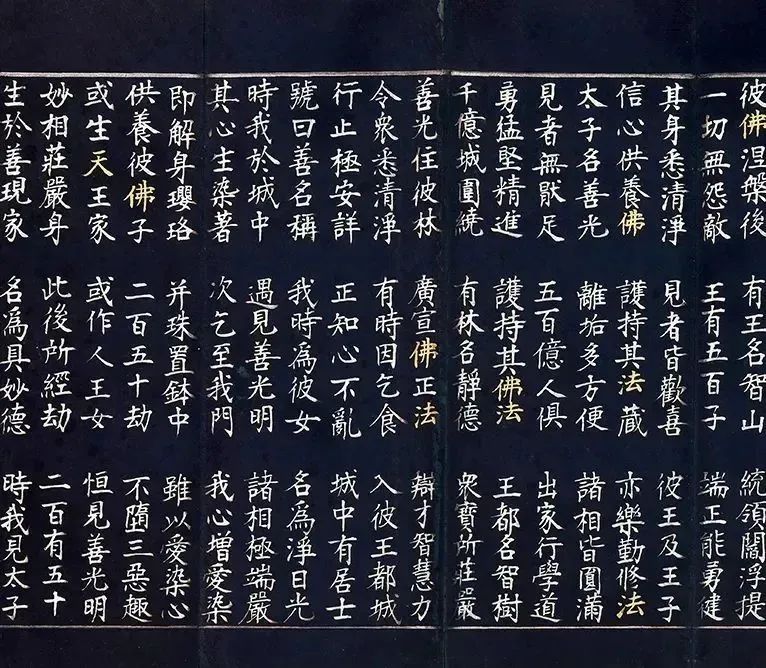 彼佛涅槃後 有王名智山 統領閻浮提
一切無怨敵 王有五百子 端正能勇健
其身悉清淨 見者皆歡喜 彼王及王子
信心供養佛 護持其法藏 亦樂勤修法
太子名善光 離垢多方便 諸相皆圓滿
見者無猒足 五百億人俱 出家行學道
勇猛堅精進 護持其佛法 王都名智樹
千億城圍繞 有林名靜德 衆寶所莊嚴
善光住彼林 廣宣佛正法 辯才智慧力
令衆悉清淨 有時因乞食 入彼王都城
行止極安詳 正知心不亂 城中有居士
號曰善名稱 我時爲彼女 名爲淨日光
時我於城中 遇見善光明 諸相極端嚴
其心生染著 次乞至我門 我心增愛染
即解身瓔珞 并珠置鉢中 雖以愛染心
供養彼佛子 二百五十劫 不墮三惡趣
或生天王家 或作人王女 恒見善光明
妙相莊嚴身 此後所經劫 二百有五十
生於善現家 名爲具妙德 時我見太子